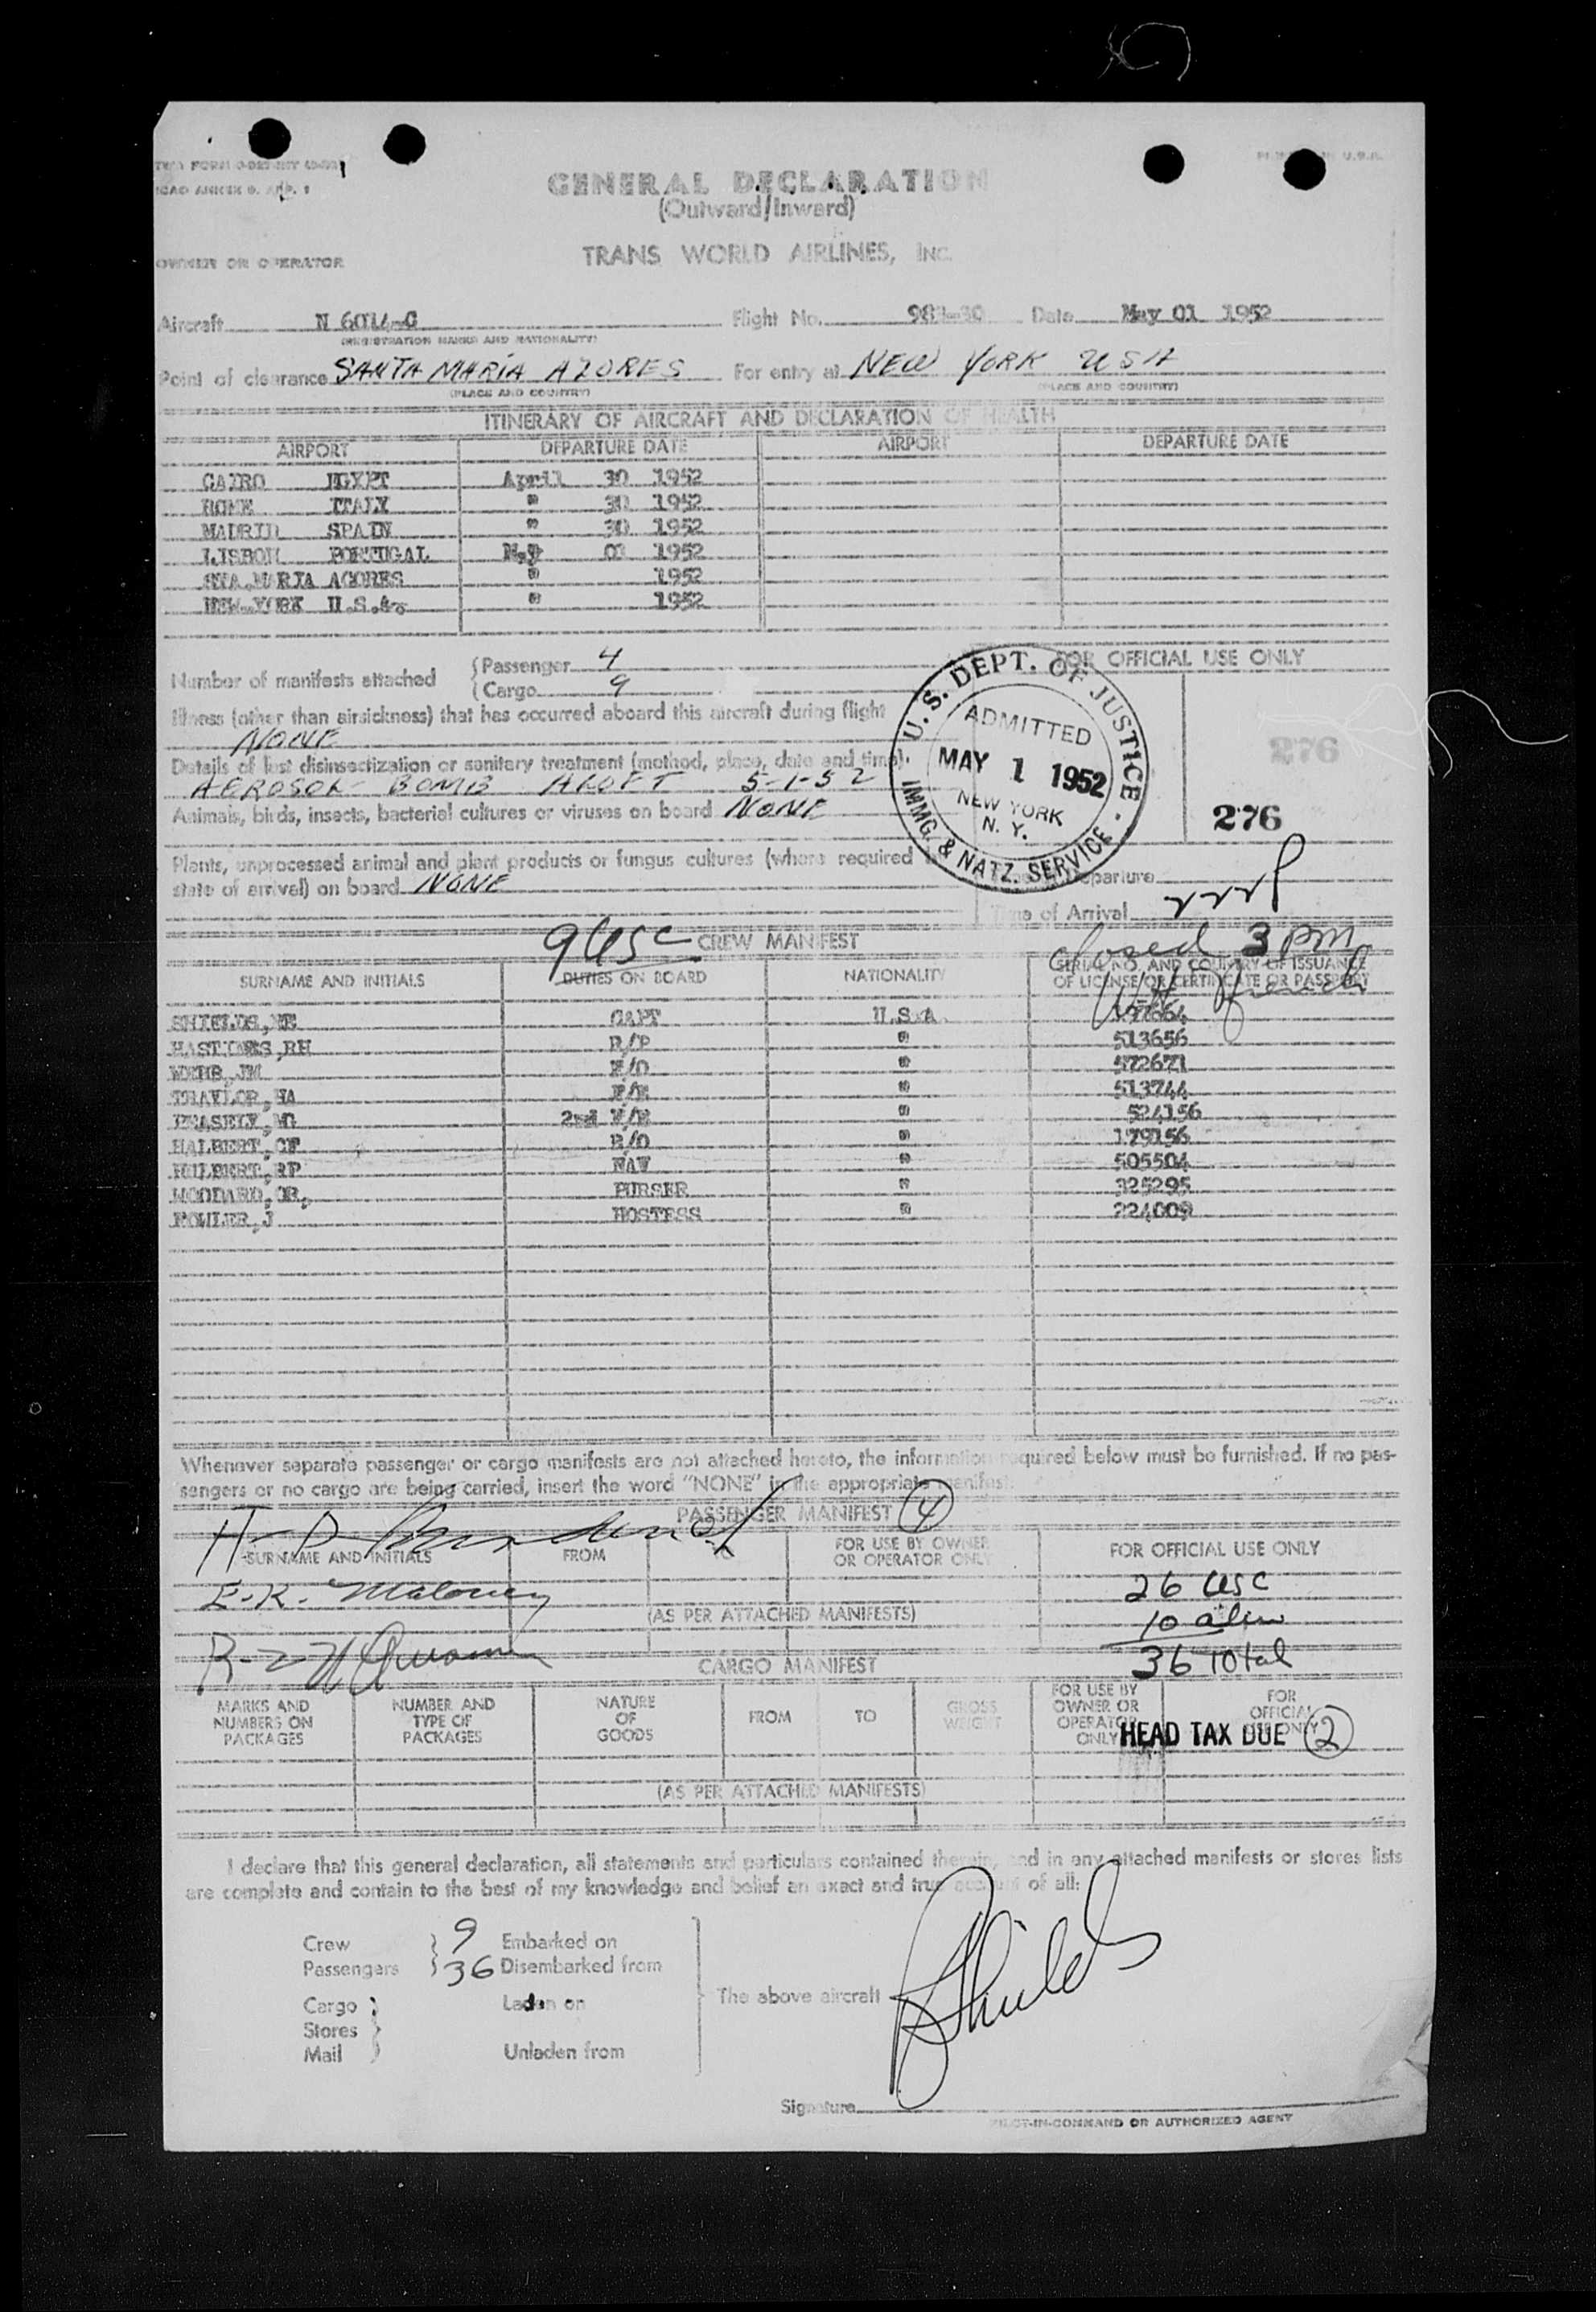 ICAO ANNEX 9. APP. 1
GENERAL DECLARATION
(Outward/Inward)
OWNER OR OPERATOR TRANS WORLD AIRLINES, INC.
Aircraft N 6014-C Flight No. Date May 01 1952
(REGISTRATION MARKS AND NATIONALITY)
Point of clearance SANTA MARIA AZORES For entry at NEW YORK USA
(PLACE AND COUNTRY) (PLACE AND COUNTRY)
ITINERARY OF AIRCRAFT AND DECLARATION OF HEALTH
AIRPORT DEPARTURE DATE AIRPORT DEPARTURE DATE
CAIRO EGYPT April 30 1952
ROME ITALY " 30 1952
MADRID SPAIN " 30 1952
LISBON PORTUGAL 1952
STA.MARIA ACORES " 1952
NEW YORK U.S.A. " 1952
Number of manifests attached
Passenger 4
Cargo 9
FOR OFFICIAL USE ONLY
U. S. DEPT. OF JUSTICE
ADMITTED
MAY 1 1952
NEW YORK
N. Y.
IMMG. & NATZ. SERVICE
276
276
Illness (other than airsickness) that has occurred aboard this aircraft during flight
NONE
Details of last disinsectization or sanitary treatment (method, place, date and time).
AEROSOL BOMB ALOFT 5-1-52
Animals, birds, insects, bacterial cultures or viruses on board NONE
Plants, unprocessed animal and plant products or fungus cultures (where required
state of arrival) on board NONE
Departure
Time of Arrival 222P
9 USC CREW MANIFEST closed 3 PM
SURNAME AND INITIALS DUTIES ON BOARD NATIONALITY SERIAL NO. AND COUNTRY OF ISSUANCE
OF LICENSE OR CERTIFICATE OR PASSPORT
SHIELDS, CAPT U.S.A.
HASTINGS,RH 513656
WEBB,JM F/O " 572671
TRAYLOR,HA F/E " 513744
BEASELY, 2nd F/E " 524156
HALBERT,CF R/O " 179156
HULBERT,RP NAV " 505504
WOODARD,CR, PURSER " 325295
FOWLER,J HOSTESS " 224009
Whenever separate passenger or cargo manifests are not attached hereto, the information required below must be furnished. If no pas-
sengers or no cargo are being carried, insert the word "NONE" in the appropriate manifest.
PASSENGER MANIFEST 4
SURNAME AND INITIALS FROM TO FOR USE BY OWNER
OR OPERATOR ONLY FOR OFFICIAL USE ONLY
E.K. Maloney
26 USC
(AS PER ATTACHED MANIFESTS) 10 alien
36 Total
CARGO MANIFEST
MARKS AND
NUMBERS ON
PACKAGES
NUMBER AND
TYPE OF
PACKAGES
NATURE
OF
GOODS
FROM
TO
GROSS
WEIGHT
FOR USE BY
OWNER OR
OPERATOR
ONLY
FOR
OFFICIAL
USE ONLY
HEAD TAX DUE 2
(AS PER ATTACHED MANIFESTS)
I declare that this general declaration, all statements and particulars contained therein, and in any attached manifests or stores lists
are complete and contain to the best of my knowledge and belief an exact and true account of all:
Crew 9 Embarked on
Passengers 36 Disembarked from
Cargo Laden on
Stores
Mail Unladen from
The above aircraft
Shields
Signature
PILOT-IN-COMMAND OR AUTHORIZED AGENT